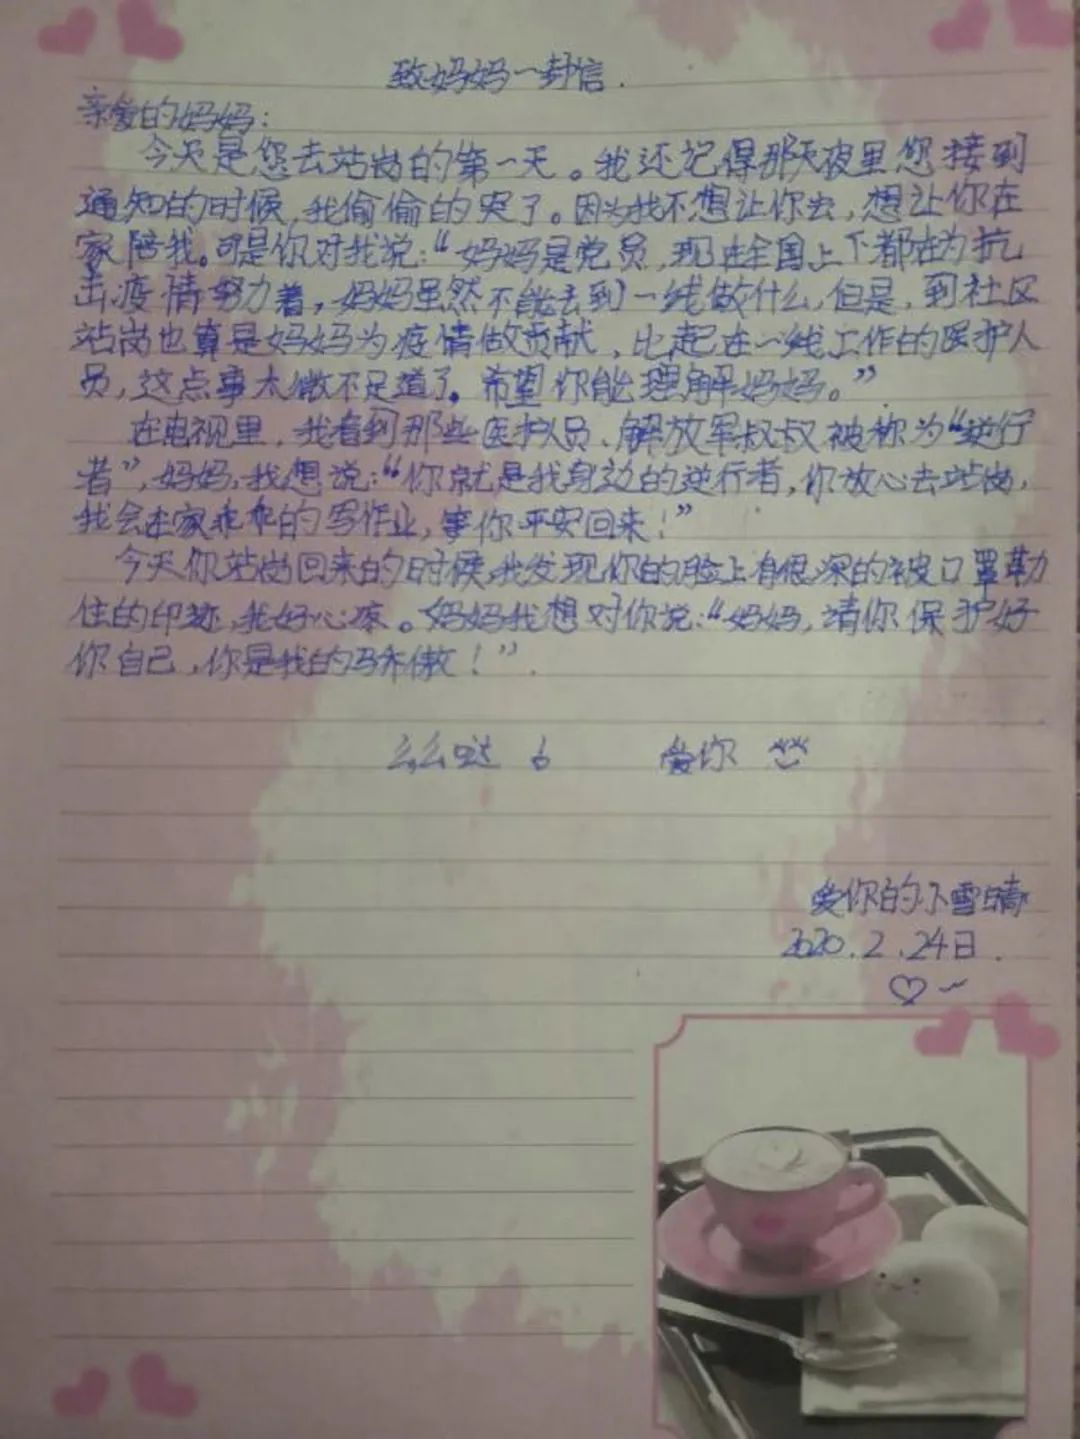 致妈妈一封信.
亲爱的妈妈:
今天是您去站岗的第一天。我还记得那天夜里您接到
通知的时候,我偷偷的哭了。因为我不想让你去,想让你在
家陪我。可是你对我说:“妈妈是党员,现在全国上下都在为抗
击疫情努力着,妈妈虽然不能去到一线做什么,但是,到社区
站岗也算是妈妈为疫情做贡献,比起在一线工作的医护人
员,这点事太微不足道了。希望你能理解妈妈。”
在电视里,我看到那些医护人员、解放军叔叔被称为“逆行
者”,妈妈,我想说:“你就是我身边的逆行者,你放心去站岗,
我会在家乖乖的写作业,等你平安回来!”
今天你站岗回来的时候,我发现你的脸上有很深的被口罩勒
住的印迹,我好心疼。妈妈我想对你说:“妈妈,请你保护好
你自己,你是我的骄傲!”.
么么哒 爱你
爱你的小雪晴
2020.2.24日.